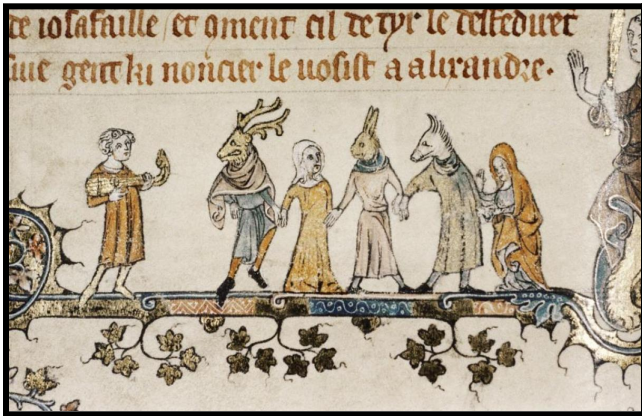 de iosafaille / et qment cil de tyr le desfedirēt
siue gent ki noncier le uosist a alixandre.